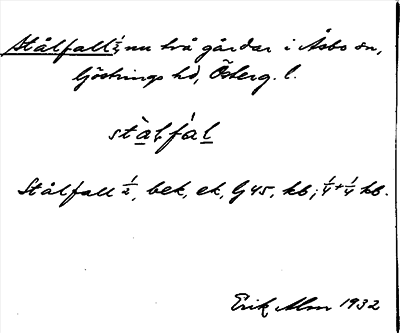 Stålfall ½, nu två gårdar i Åsbo sn,
Göstrings hd, Österg. l.
stàlfàl
Stålfall ½, bek, ek, G 45, hb, ¼+¼ hb.
Erik Alm 1932